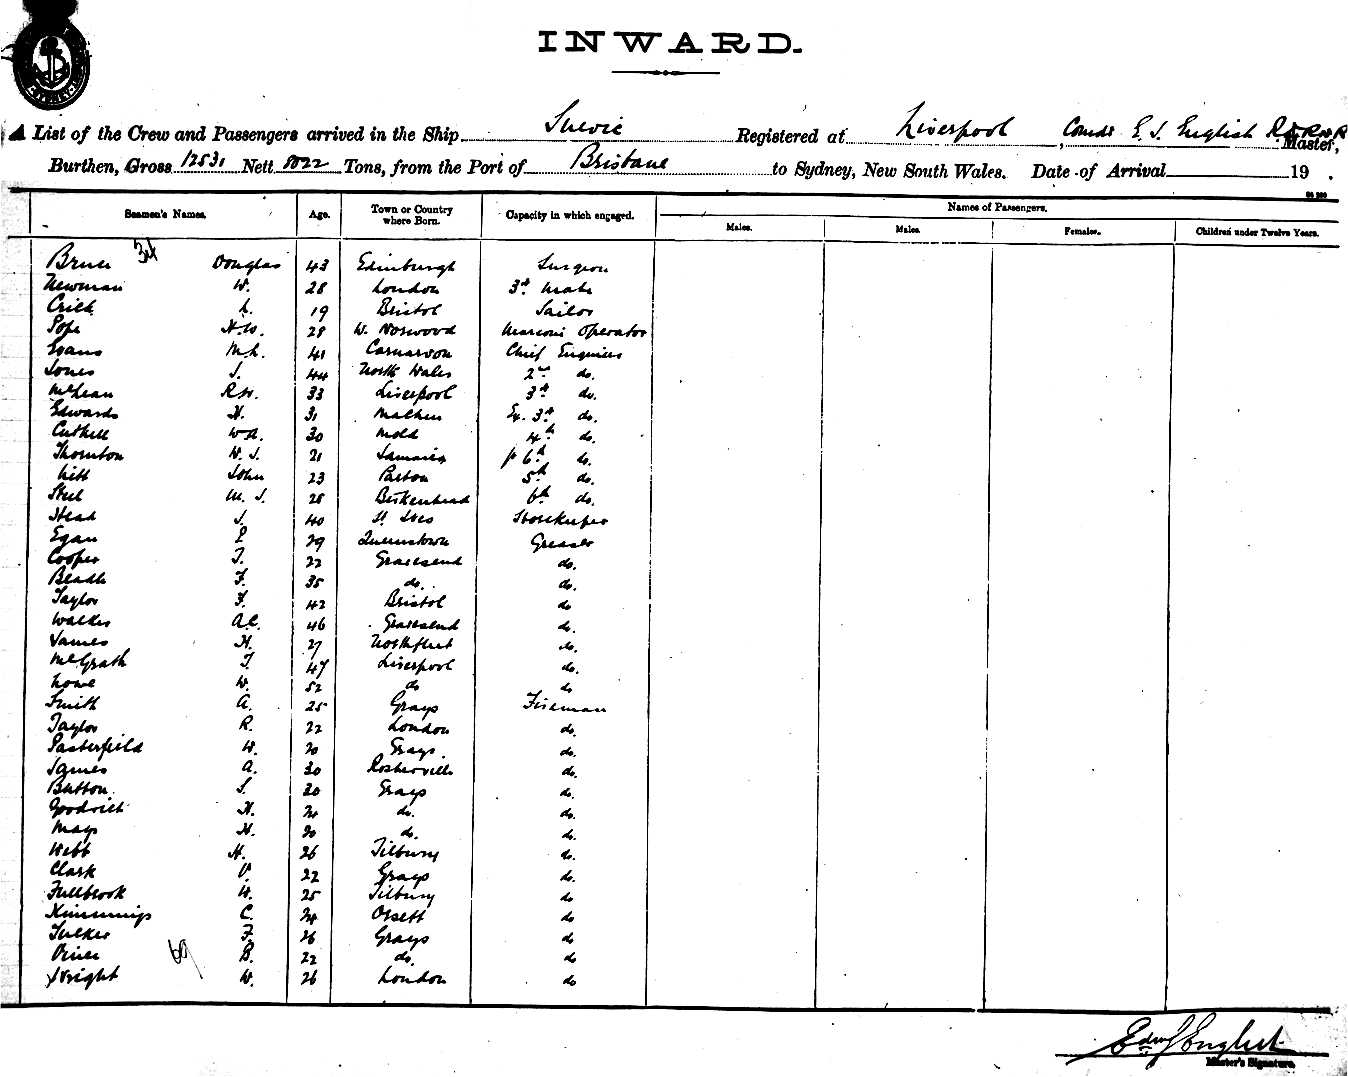 INWARD.
SYDNEY
A List of the Crew and Passengers arrived in the Ship Suevic Registered at Liverpool, Comdr E. J. English R.D. R.N.R Master,
Burthen, Gross 12531 Nett 8022 Tons, from the Port of Brisbane to Sydney, New South Wales. Date of Arrival 19 .
Seamen's Names. Age. Town or Country where Born. Capacity in which engaged. Names of Passengers.
Males. Males. Females. Children under Twelve Years.
Bruce Douglas 43 Edinburgh Surgeon
Newman W. 28 London 3rd Mate
Crick L. 19 Bristol Sailor
Pope H.W. 28 W. Norwood Marconi Operator
Evans M.L. 41 Carnarvon Chief Engineer
Jones J. 44 North Wales 2nd do.
McLean R.W. 33 Liverpool 3rd do.
Edwards H. 31 Machen Ex. 3rd do.
Cuthill W.A. 30 Mold 4th do.
Thornton W. J. 21 Jamaica 6th do.
John 23 Parton 5th do.
Steel M. J. 28 Birkenhead 6th do.
Stead J. 40 St Ives Storekeeper
Egan P 29 Queenstown Greaser
Cooper T. 22 Gravesend do.
Beadle F. 35 do. do.
Taylor F. 42 Bristol do
Walker A.C. 46 Gravesend do.
James H. 27 Northfleet do.
McGrath T. 47 Liverpool do.
Lowe W. 52 do do
Smith A. 25 Grays Fireman
Taylor R. 22 London do.
Pasterfield W. 20 Grays. do.
James A. 30 Rosherville do.
Button J. 20 Grays do.
Goodwill H. 24 do. do.
Mays H. 20 do. do.
Webb H. 26 Tilbury do.
Clark V. 22 Grays do.
Fullbrook W. 25 Tilbury do
Kimmings C. 24 Orsett do
Tucker F. 26 Grays do
B. 22 do. do
Wright W. 26 London do
Edwd J English
Master's Signature.